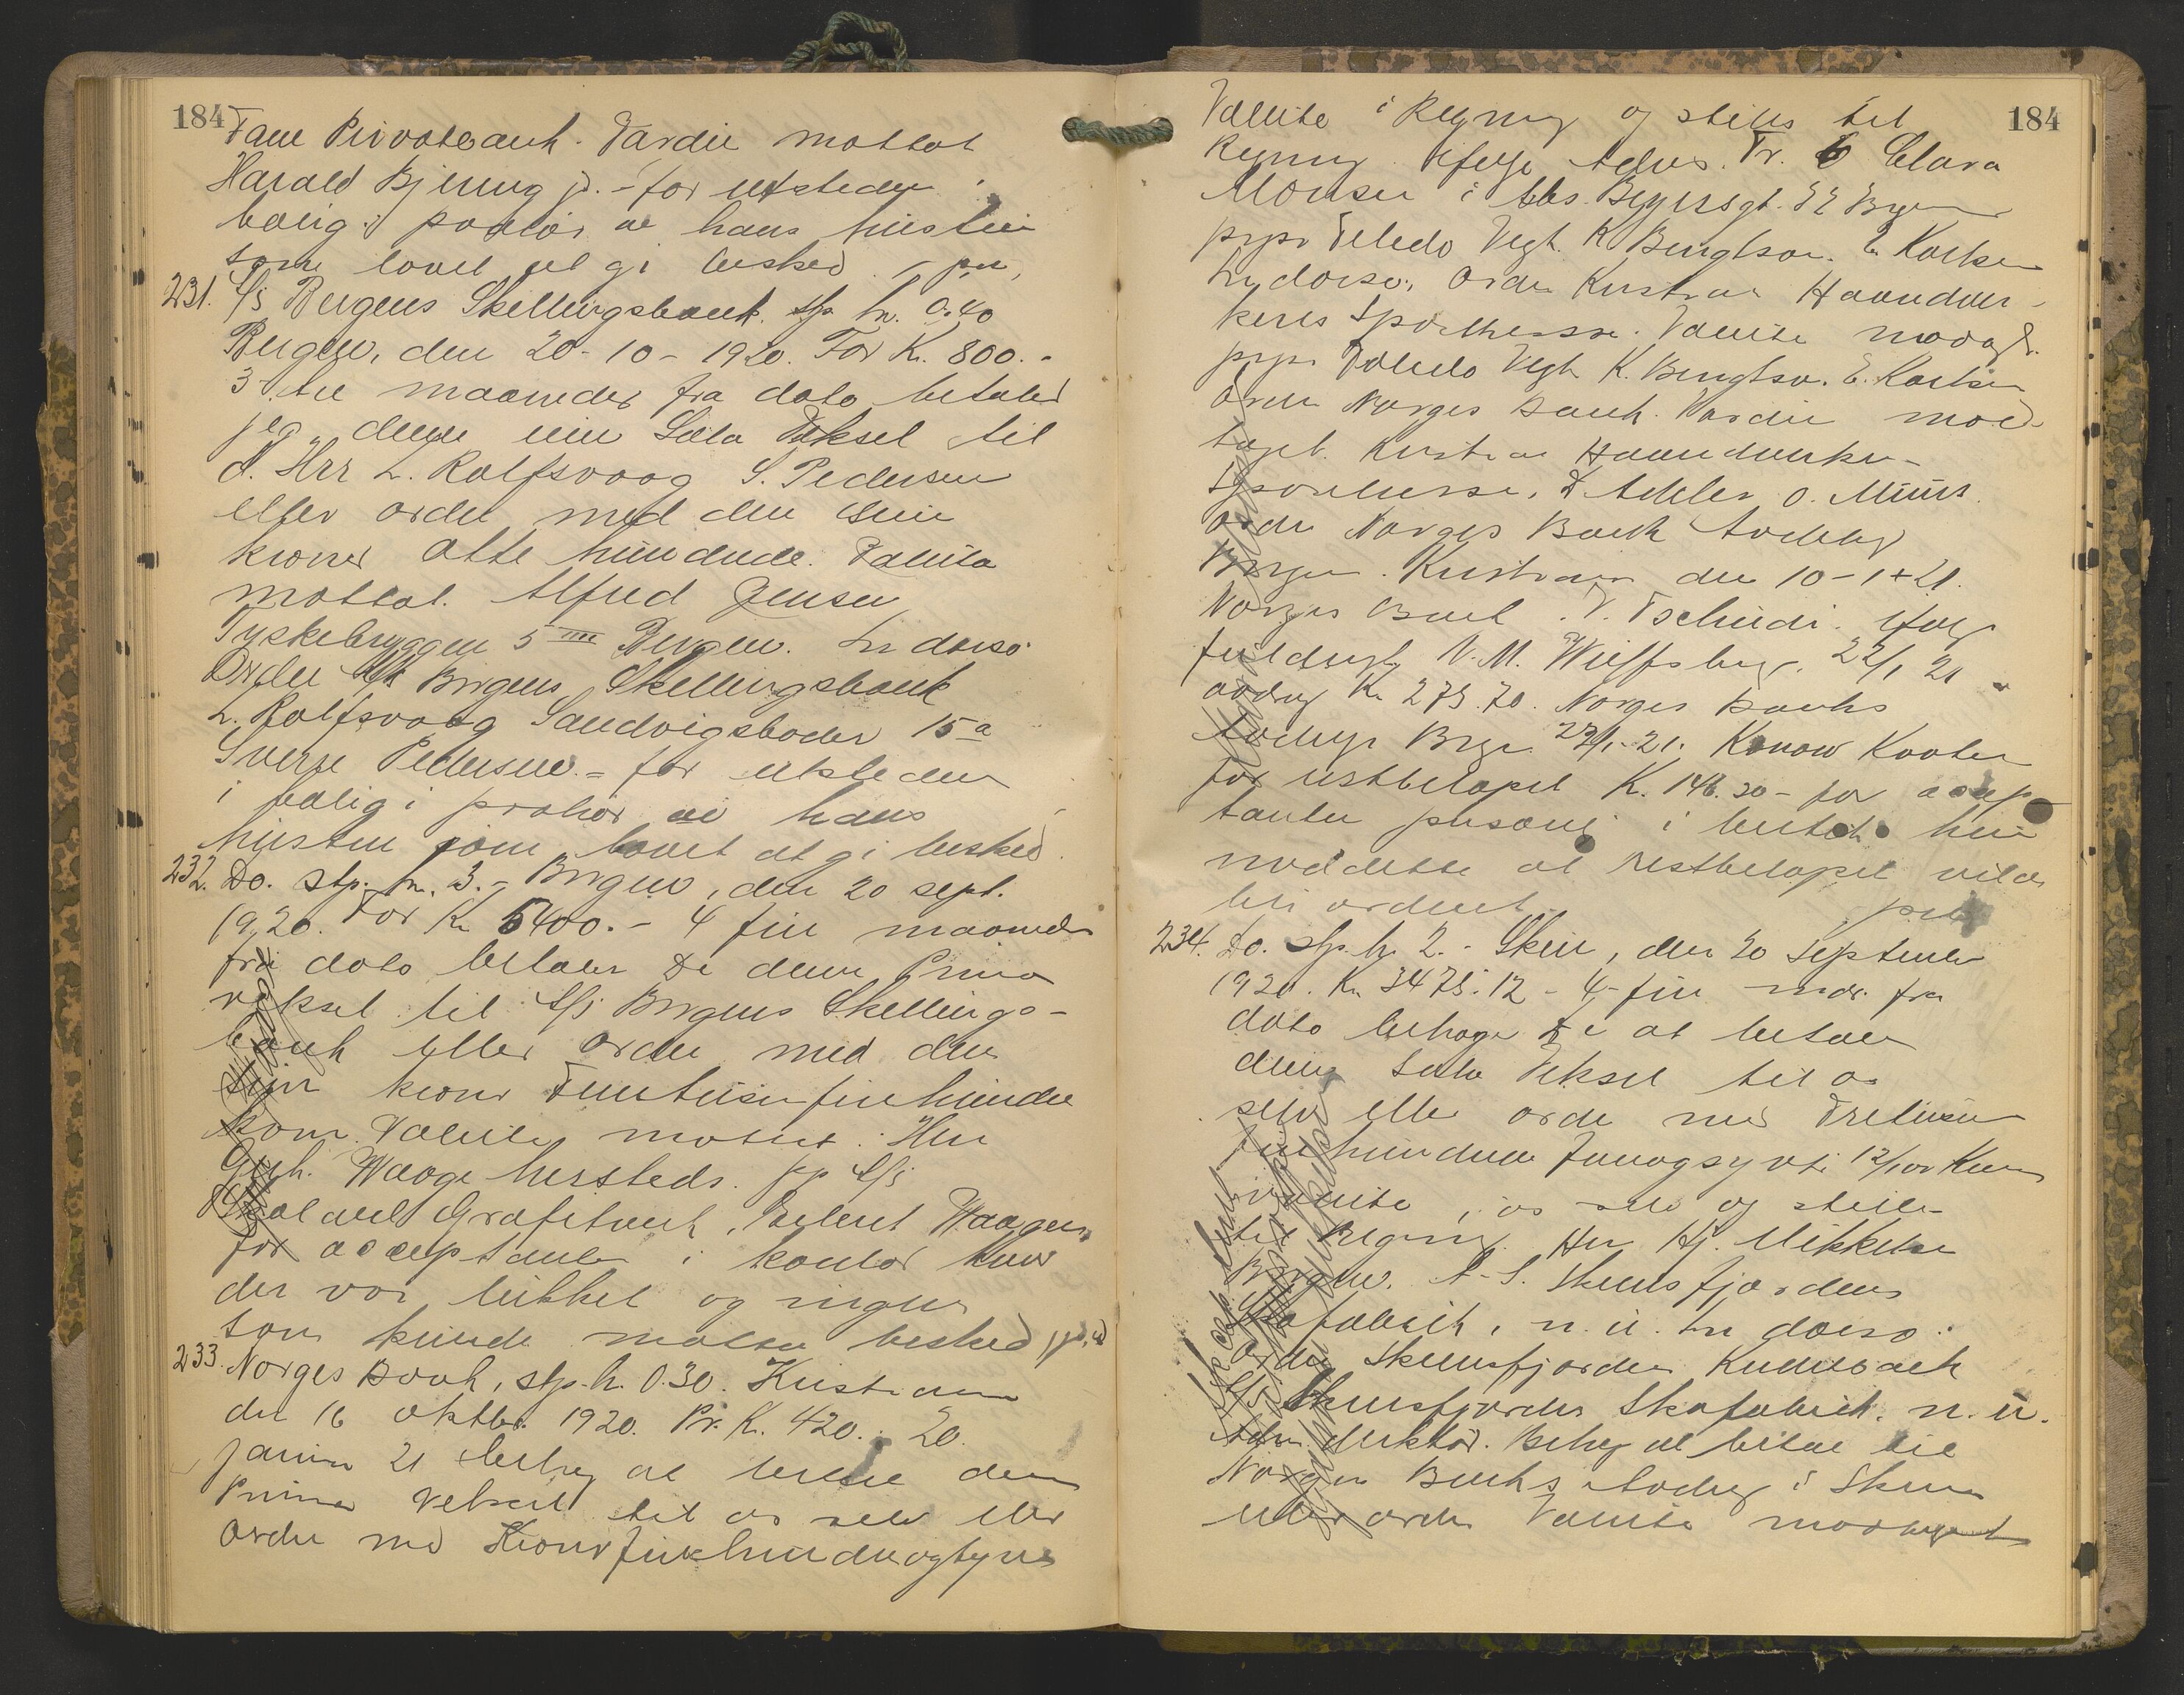 184
Fane Privatbank. Værdie mottat
Harald Bjerring jr. - for utsteder i
bolig i paahør av hans hustru
som lovet at gi besked. -
231. A/s Bergens Skillingsbank. stp. kr. 0.40
Bergen, den 20-10-1920. For Kr. 800.-
3 tre maaneder fra dato betaler
jeg denne min Sola Veksel til
d. Hrr L. Rolfsvaag S. Pedersen
eller ordre med den sum
kroner otte hundrede. Valuta
mottat. Alfred Jensen
Tyskebryggen 5 III Bergen. In dorso
Ordre A/s Bergens Skillingsbank
L. Rolfsvaag Sandvigsboder 15 a
Sverre Pedersen. - for utstederen
i bolig i paahør av hans
hustru som lovet at gi besked.
232. Do. stp. kr. 3.- Bergen, den 20 sept.
1920. For Kr 5400.- 4 fire maaneder
fra dato betaler De denne Prima
veksel til A/s Bergens Skillings-
bank eller ordre med den
sum kroner Femtusinfirehundre
kom. Valuta mottat. Herr
Waage hersteds. pp A/s
Grafitverk,
for acceptanten i kontor hvor
der var lukket og ingen
som kunde motta besked
233. Norges Bank, stp. kr. 0.30. Kristiania
den 16 oktbr. 1920. Pr. Kr. 420.- 20.
januar 21 behag at betale denne
Prima veksel til os selv eller
ordre med Kroner firehundredeogtyve
184
Valuta i Regning og stilles til
Regning ifølge Advis. Fr. Clara
Monsen i Bergen
prpr Toledo Vegt K. Bengtson. E. Karlsen
In dorso, Ordre Kristiania Haandver-
keres Sparekasse. Valuta modagt.
prpr Toledo Vegt K. Bengtson. E. Karlsen
Ordre Norges Bank. Værdie mod-
taget. Kristiania Haandverker-
Sparekasse.
Ordre Norges Bank Avdeling
Bergen. Kristiania den 10-1-21.
Norges Bank. V. Tschudi. ifølge
fuldmagt N. M. Wulfsberg. 22/1 21
avdrag Kr 273.70. Norges Banks
Avdeling Bergen 22/1-21. Konow
for restbeløpet Kr. 146.30 - for accep
tanten personlig i hun
at restbeløpet vilde
bli ordnet.
234. Do. stp. kr 2.- Skien, den 20 september
1920. Kr. 3475.12 - 4 - fire mdr. fra
dato behager De at betale
denne Sola Veksel til os
selv eller ordre med Tretusen
firehundrede femogsytti 12/100 Kroner
valuta i os selv og stilles
til Regning. Herr Hj. Mikkelsen
Bergen. A-S. Skiensfjordens
Skofabrik, n. ü. In dorso.
Ordre Skiensfjordens Kreditbank
A/S Skiensfjordens Skofabrik. n. ü.
Adm. direktør. Behag at betale til
Norges Banks Avdeling i Skien
eller ordre Valuta modtaget